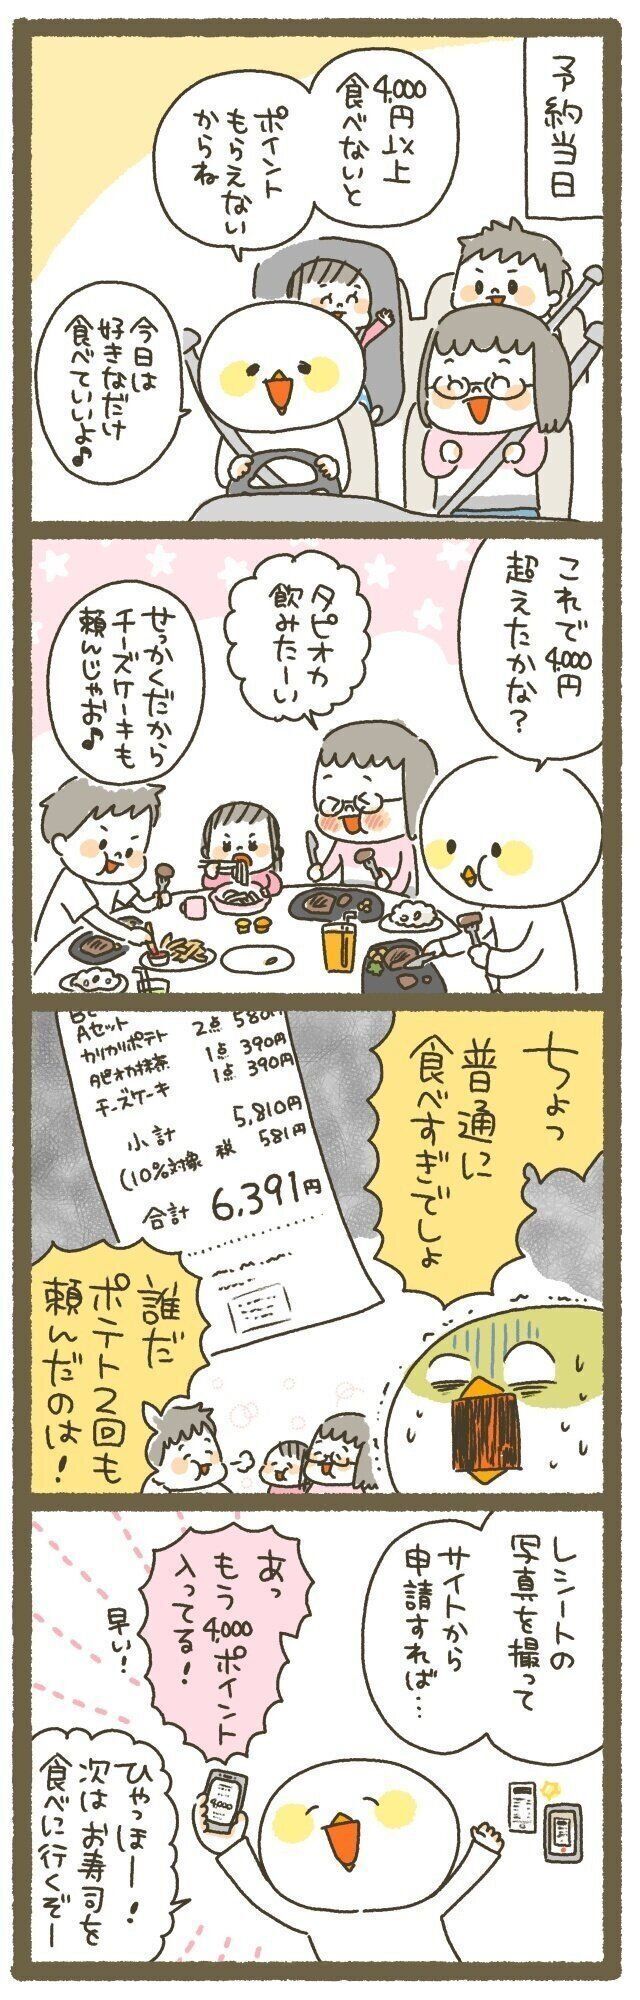 予約当日
4,000円以上
食べないと
ポイント
もらえない
からね
今日は
好きなだけ
食べていいよ♪
これで4,000円
超えたかな？
タピオカ
飲みたーい
せっかくだから
チーズケーキも
頼んじゃお♪
Aセット
カリカリポテト 2点 580円
タピオカ抹茶 1点 390円
チーズケーキ 1点 390円
小計 5,810円
(10%対象 税 581円
合計 6,391円
ちょっ
普通に
食べすぎでしょ
誰だ
ポテト2回も
頼んだのは！
レシートの
写真を撮って
サイトから
申請すれば…
あっ
もう4,000ポイント
入ってる！
早い！
4,000
ひゃっほー！
次はお寿司を
食べに行くぞー